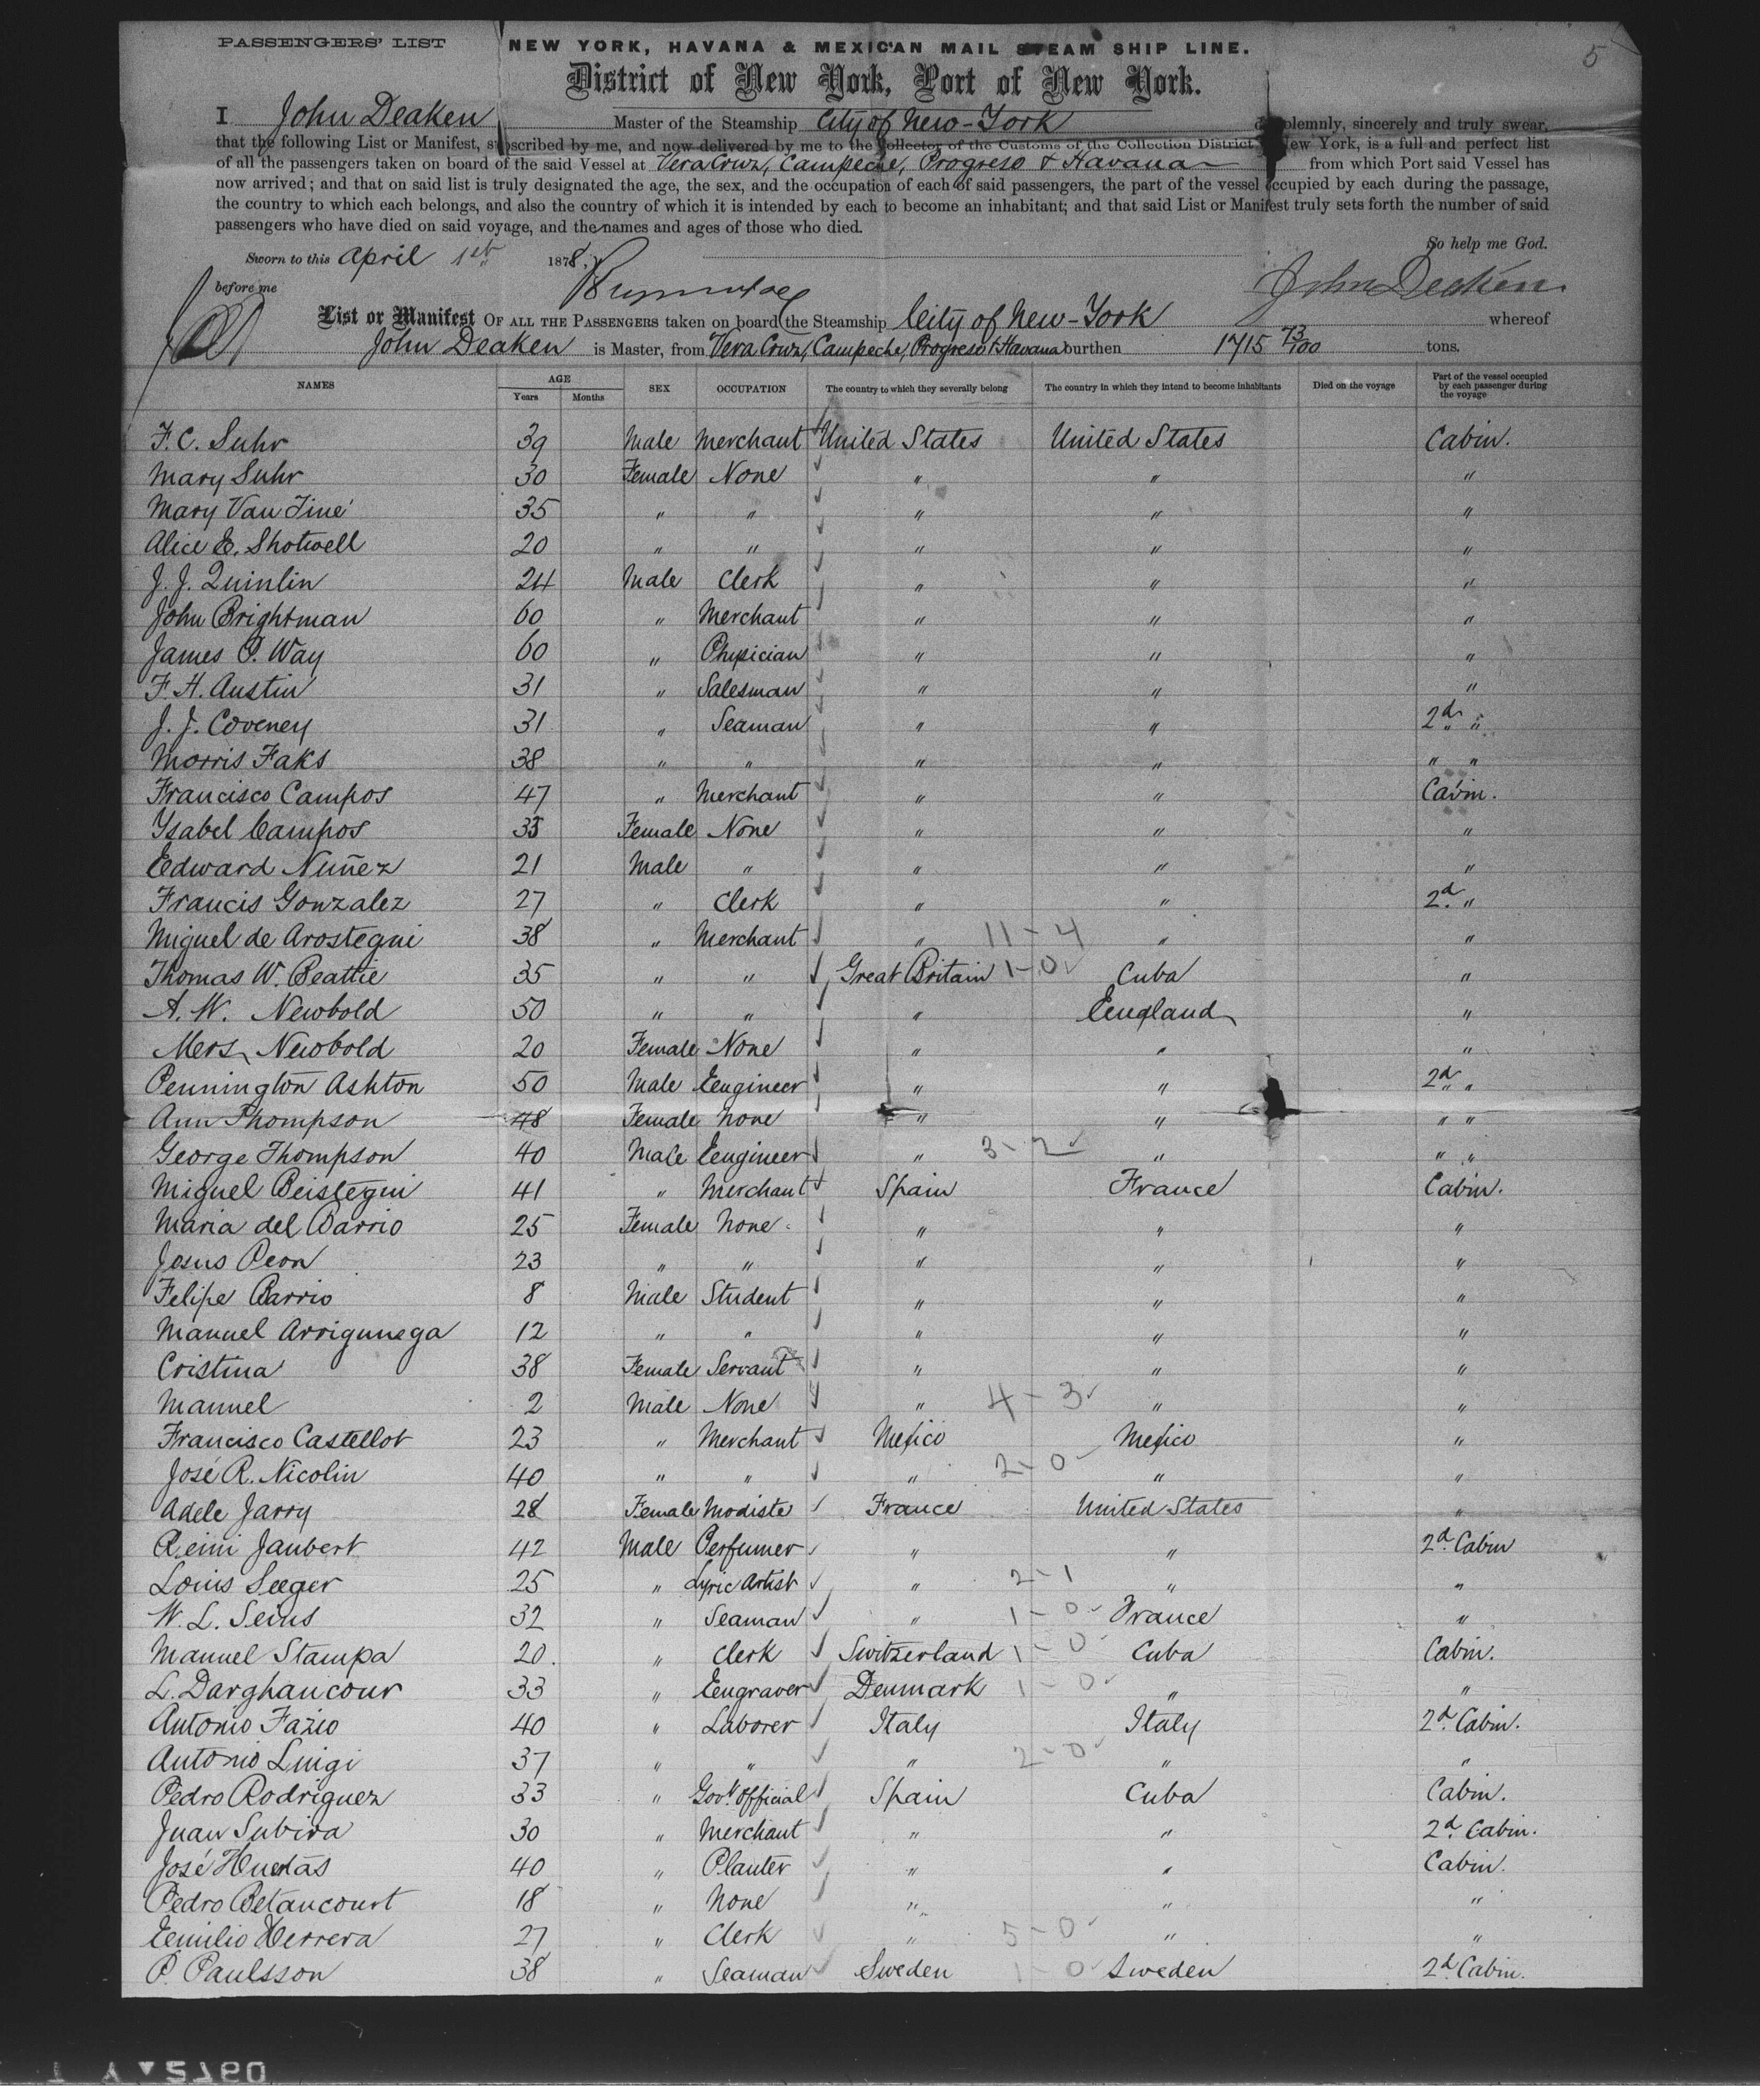 PASSENGERS' LIST NEW YORK, HAVANA & MEXICAN MAIL STEAM SHIP LINE. 5
District of New York, Port of New York.
I John Deaken Master of the Steamship City of New-York do solemnly, sincerely and truly swear,
that the following List or Manifest, subscribed by me, and now delivered by me to the Collector of the Customs of the Collection District New York, is a full and perfect list
of all the passengers taken on board of the said Vessel at Vera Cruz, Campeche, Progreso & Havana from which Port said Vessel has
now arrived; and that on said list is truly designated the age, the sex, and the occupation of each of said passengers, the part of the vessel occupied by each during the passage,
the country to which each belongs, and also the country of which it is intended by each to become an inhabitant; and that said List or Manifest truly sets forth the number of said
passengers who have died on said voyage, and the names and ages of those who died.
So help me God.
Sworn to this April 1st 1878,
before me John Deaken
List or Manifest OF ALL THE PASSENGERS taken on board the Steamship City of New-York whereof
John Deaken is Master, from Vera Cruz, Campeche, Progreso & Havana burthen 1715 73/100 tons.
NAMES AGE Years Months SEX OCCUPATION The country to which they severally belong The country in which they intend to become inhabitants Died on the voyage Part of the vessel occupied by each passenger during the voyage
F. C. Suhr 39 Male Merchant United States United States Cabin.
Mary Suhr 30 Female None " " "
Mary Van Tine 35 " " " " "
Alice E. Shotwell 20 " " " " "
J. J. Quinlin 24 Male Clerk " " "
John Brightman 60 " Merchant " " "
James P. Way 60 " Physician " " "
F. H. Austin 31 " Salesman " " "
J. J. Coveney 31 " Seaman " " 2d "
Morris Faks 38 " " " " " "
Francisco Campos 47 " Merchant " " Cabin.
Ysabel Campos 35 Female None " " "
Edward Nuñez 21 Male " " " "
Francis Gonzalez 27 " Clerk " " 2d "
Miguel de Arostegui 38 " Merchant " 11-4 " "
Thomas W. Beattie 35 " " Great Britain 1-0 Cuba "
A. W. Newbold 50 " " " England "
Mrs. Newbold 20 Female None " " "
Pennington Ashton 50 Male Engineer " " 2d "
Ann Thompson 48 Female None " " " "
George Thompson 40 Male Engineer " 3-2 " " "
Miguel Beistegui 41 " Merchant Spain France Cabin.
Maria del Barrio 25 Female None " " "
Jesus Peon 23 " " " " "
Felipe Barrio 8 Male Student " " "
Manuel Arrigunega 12 " " " " "
Cristina 38 Female Servant " " "
Manuel 2 Male None " 4-3 " "
Francisco Castellot 23 " Merchant Mexico Mexico "
José R. Nicolin 40 " " " 2-0 " "
Adele Jarry 28 Female Modiste France United States "
Remi Jaubert 42 Male Perfumer " " 2d Cabin
Louis Seeger 25 " Lyric Artist " 2-1 " "
W. L. Seins 32 " Seaman " 1-0 France "
Manuel Stampa 20. " Clerk Switzerland 1-0 Cuba Cabin.
L. Darghancour 33 " Engraver Denmark 1-0 " "
Antonio Fazio 40 " Laborer Italy Italy 2d Cabin.
Antonio Luigi 37 " " " 2-0 " "
Pedro Rodriguez 33 " Govt. Official Spain Cuba Cabin.
Juan Subira 30 " Merchant " " 2d Cabin.
José Huertas 40 " Planter " " Cabin.
Pedro Betancourt 18 " None " " "
Emilio Herrera 27 " Clerk " 5-0 " "
P. Paulsson 38 " Seaman Sweden 1-0 Sweden 2d Cabin.